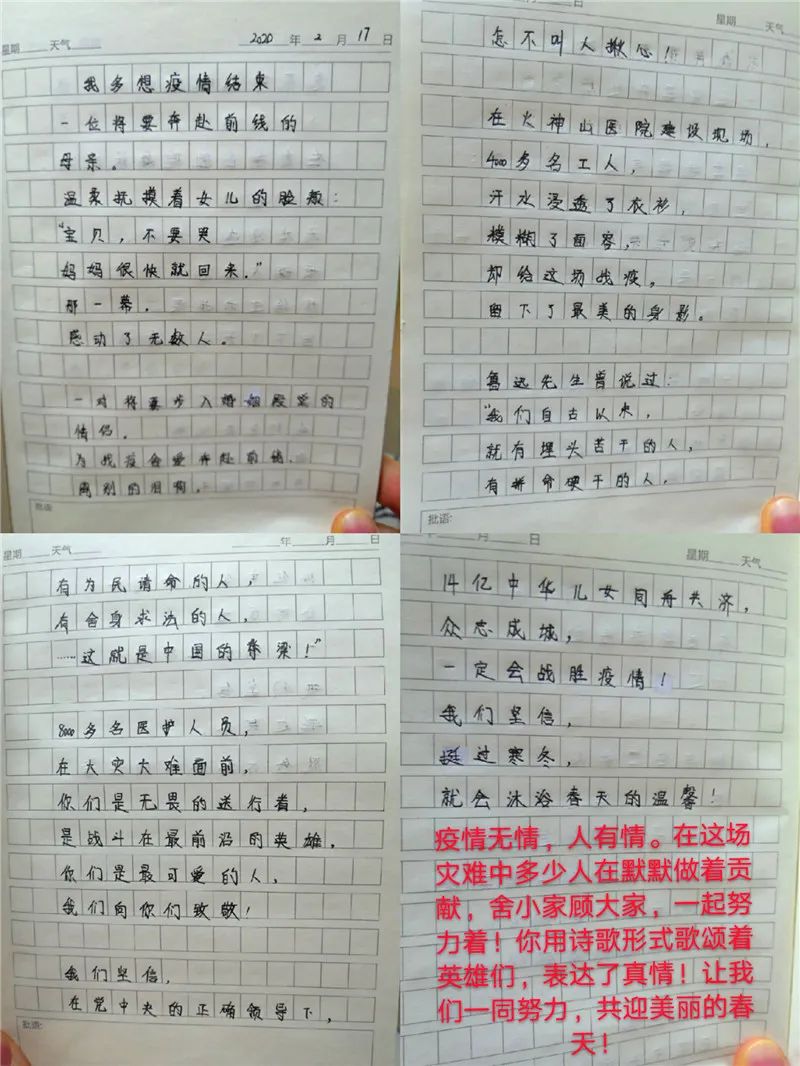 星期 天气 2020 年 2 月 17 日
我多想疫情结束
一位将要奔赴前线的
母亲。
温柔抚摸着女儿的脸颊:
“宝贝,不要哭
妈妈很快就回来。”
那一幕,
感动了无数人。
一对将要步入婚姻殿堂的
情侣,
为战疫舍爱奔赴前线,
离别的
批语:
星期 天气
日
怎不叫人揪心!
在火神山医院建设现场,
4000多名工人,
汗水浸透了衣衫,
模糊了面容,
却给这场战疫。
留下了最美的身影。
鲁迅先生曾说过:
“我们自古以来,
就有埋头苦干的人,
有拼命硬干的人,
批语:
星期 天气 年 月 日
有为民请命的人,
有舍身求法的人,
……这就是中国的脊梁!”
8000多名医护人员,
在大灾大难面前,
你们是无畏的逆行者,
是战斗在最前沿的英雄,
你们是最可爱的人,
我们向你们致敬!
我们坚信,
在党中央的正确领导下,
批语:
月 日 星期 天气
14亿中华儿女同舟共济,
众志成城,
一定会战胜疫情!
我们坚信,
挺过寒冬,
就会沐浴春天的温馨!
疫情无情,人有情。在这场
灾难中多少人在默默做着贡
献,舍小家顾大家,一起努
力着!你用诗歌形式歌颂着
英雄们,表达了真情!让我
们一同努力,共迎美丽的春
天!